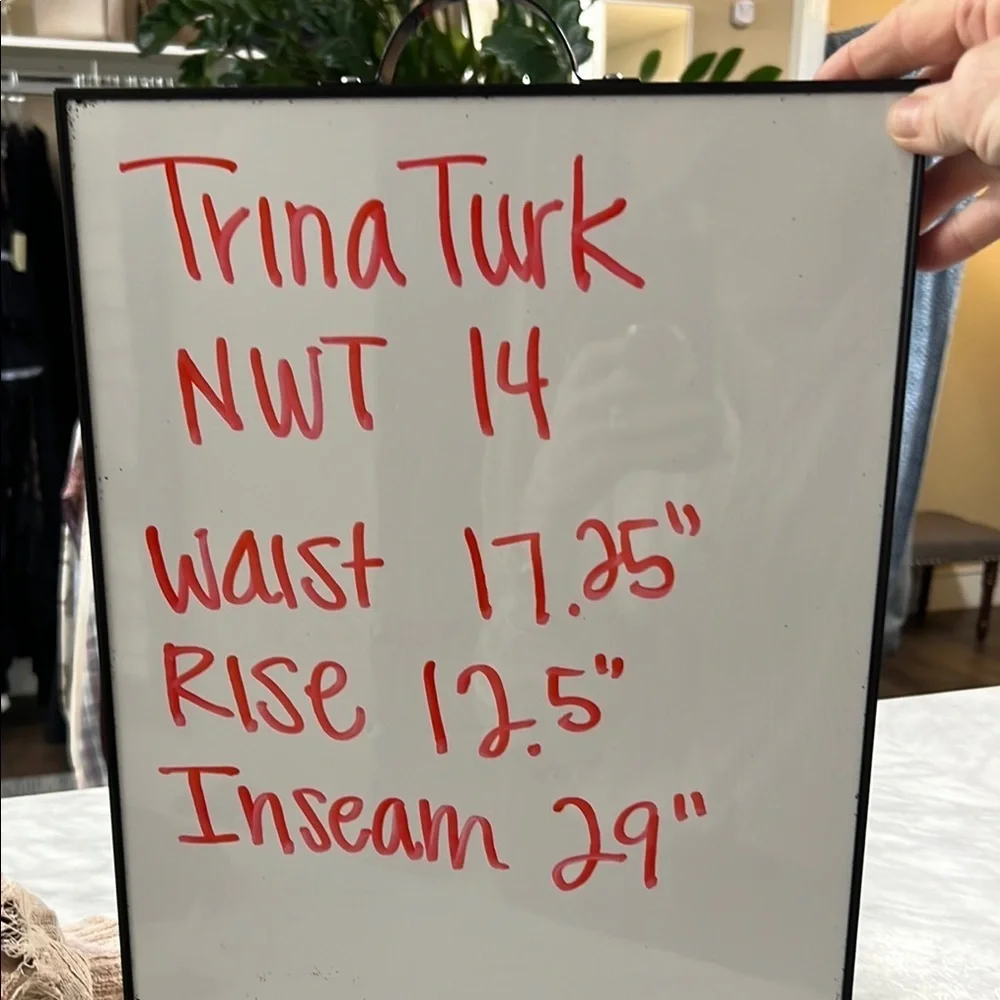 Trina Turk
NWT 14
Waist 17.25"
Rise 12.5"
Inseam 29"